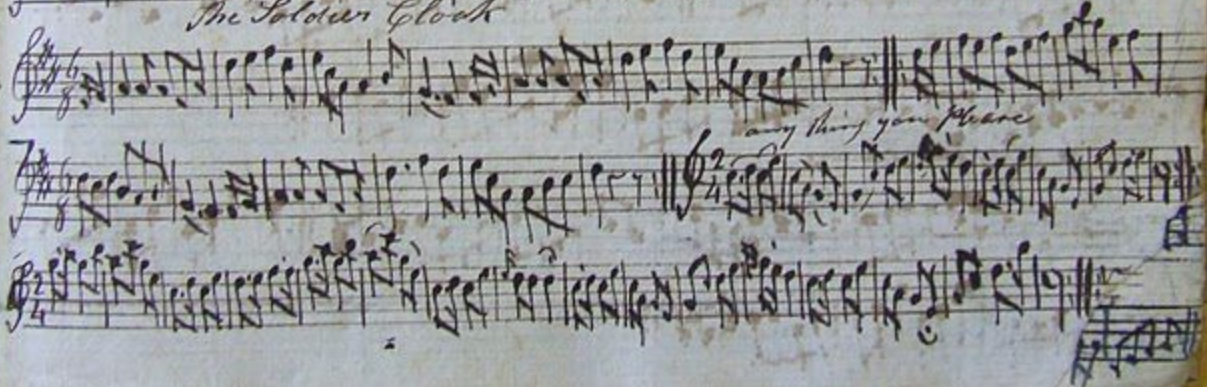 The Soldier Cloak
6
8
any thing you Please
6
8
2
4
2
4